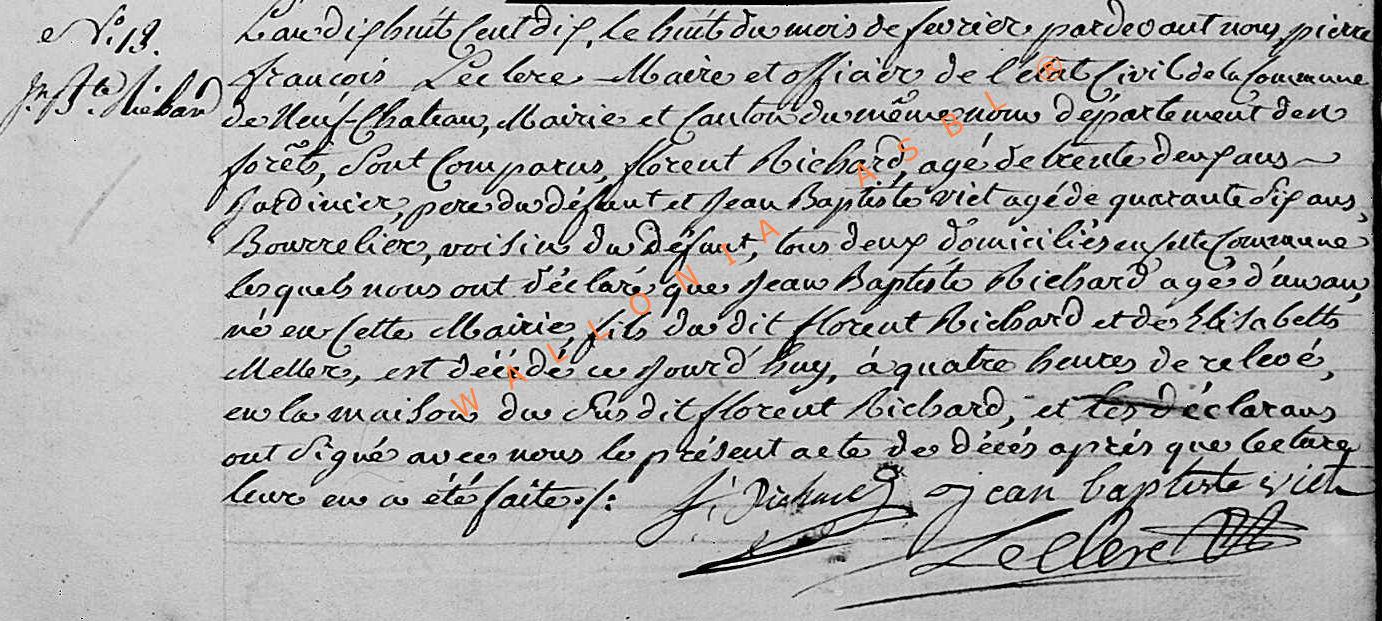 N.° 13.
Jn. Bte. Richard
L'an dix huit Cent dix, le huit du mois de fevrier pardevant nous, pierre
françois Leclere Maire et officier de l'état Civil de la Commune
de Neuf-Chateau, Mairie et Canton du même nom département des
forêts, Sont Comparus, florent Richard, agé de trente deux ans
Jardinier, pere du défunt et Jean Baptiste Viet agé de quarante Six ans,
Bourrelier, voisin du Défunt, tous deux domiciliés en Cette Commune
lesquels nous ont déclaré que Jean Baptiste Richard agé d'un an,
né en Cette Mairie fils du dit florent Richard et de Elisabeth
Meller, est décédé ce Jourd'huy, à quatre heures de relevé,
en la maison du Susdit florent Richard, et les déclarans
ont Signé avec nous le présent acte de décés aprés que lecture
leur en a été faite ./:
f: Richard
jean baptiste viet
Leclere
WALLONIA ASBL ®